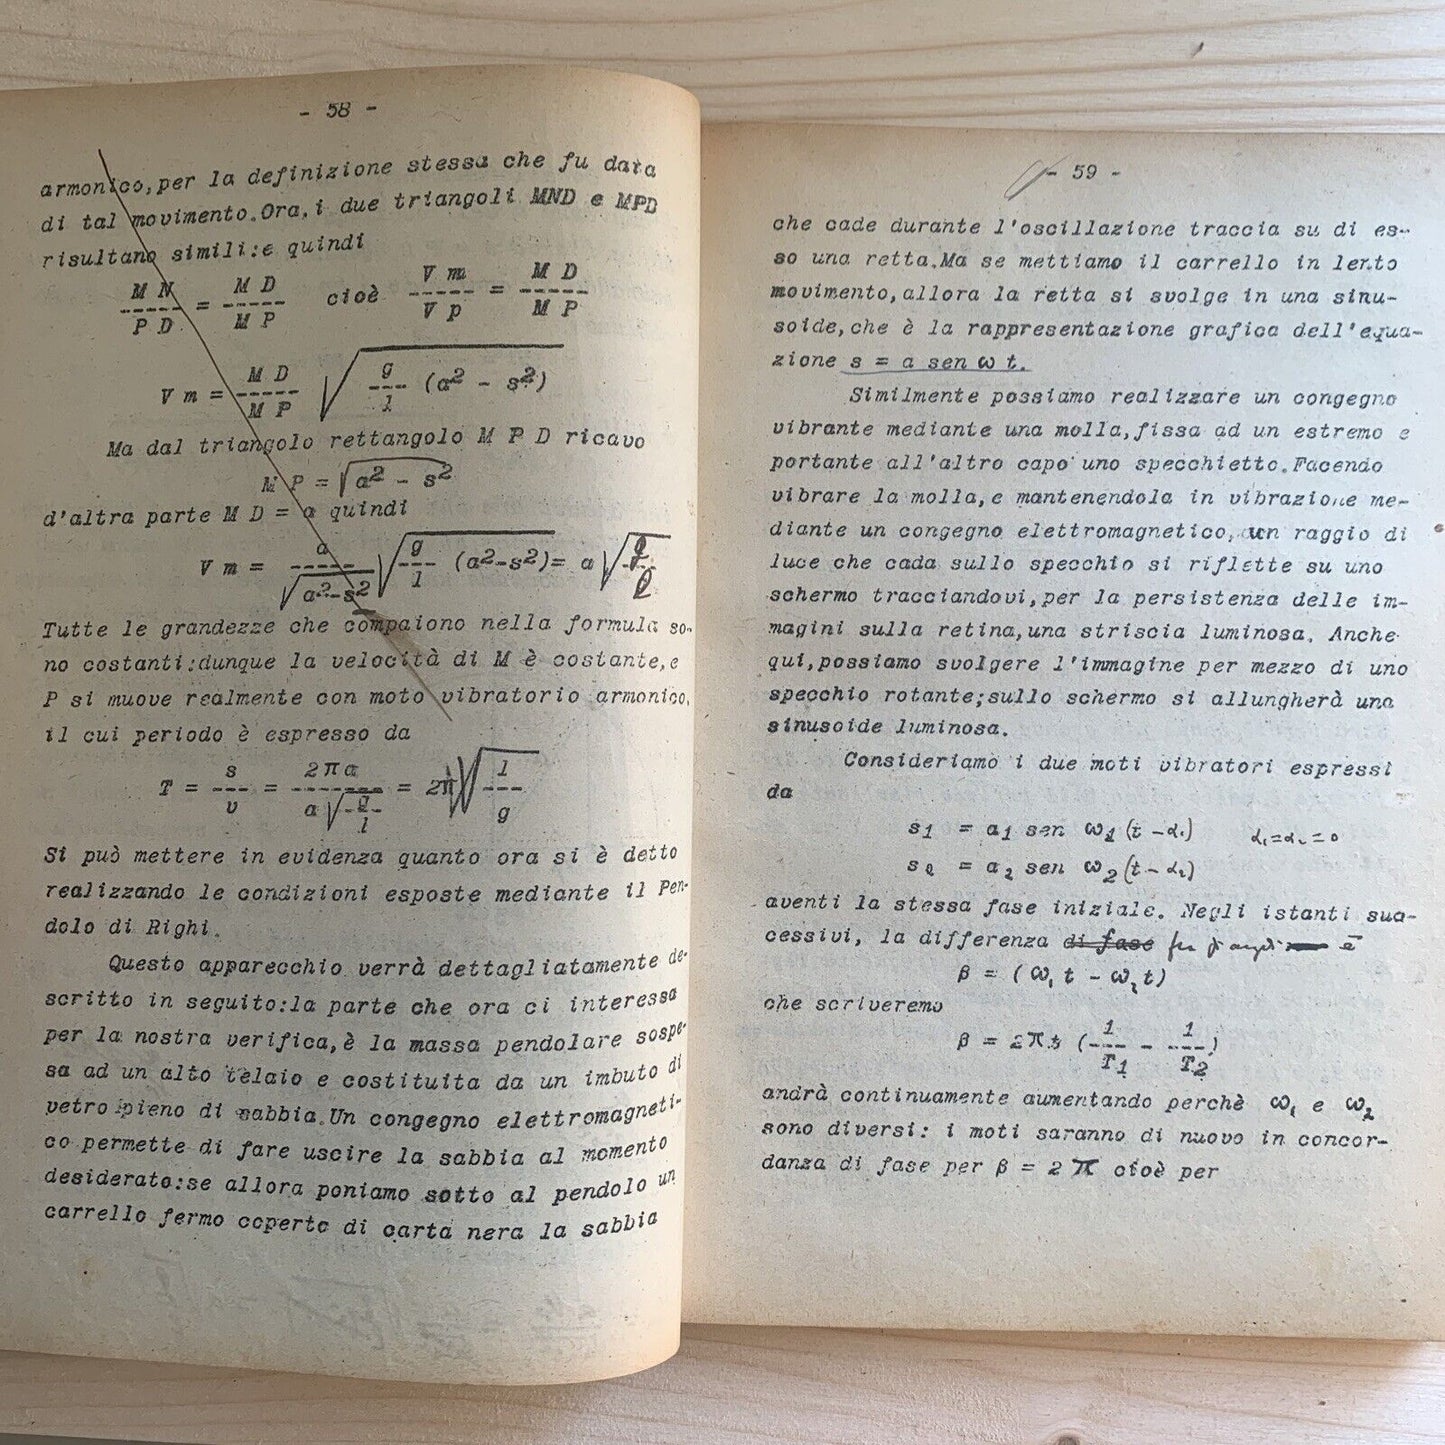 - 58 -
armonico,per la definizione stessa che fu data
di tal movimento.Ora,i due triangoli MND e MPD
risultano simili:e quindi
M N / P D = M D / M P cioè V m / V p = M D / M P
V m = M D / M P √ g / l (a2 - s2)
Ma dal triangolo rettangolo M P D ricavo
M P = √a2 - s2
d'altra parte M D = a quindi
V m = a / √a2-s2 √ g / l (a2-s2) = a √ g / l
Tutte le grandezze che compaiono nella formula so-
no costanti:dunque la velocità di M è costante,e
P si muove realmente con moto vibratorio armonico,
il cui periodo è espresso da
T = s / v = 2πa / a √ g / l = 2π √ l / g
Si può mettere in evidenza quanto ora si è detto
realizzando le condizioni esposte mediante il Pen-
dolo di Righi.
Questo apparecchio verrà dettagliatamente de-
scritto in seguito:la parte che ora ci interessa
per la nostra verifica,è la massa pendolare sospe-
sa ad un alto telaio e costituita da un imbuto di
vetro pieno di sabbia.Un congegno elettromagneti-
co permette di fare uscire la sabbia al momento
desiderato:se allora poniamo sotto al pendolo un
carrello fermo coperto di carta nera la sabbia
- 59 -
che cade durante l'oscillazione traccia su di es-
so una retta.Ma se mettiamo il carrello in lento
movimento,allora la retta si svolge in una sinu-
soide,che è la rappresentazione grafica dell'equa-
zione s = a sen ω t.
Similmente possiamo realizzare un congegno
vibrante mediante una molla,fissa ad un estremo e
portante all'altro capo uno specchietto.Facendo
vibrare la molla,e mantenendola in vibrazione me-
diante un congegno elettromagnetico, un raggio di
luce che cada sullo specchio si riflette su uno
schermo tracciandovi,per la persistenza delle im-
magini sulla retina,una striscia luminosa. Anche
qui,possiamo svolgere l'immagine per mezzo di uno
specchio rotante;sullo schermo si allungherà una
sinusoide luminosa.
Consideriamo i due moti vibratori espressi
da
s1 = a1 sen ω1 (t - α1) α1=α2=0
s2 = a2 sen ω2 (t - α2)
aventi la stessa fase iniziale. Negli istanti suc-
cessivi, la differenza di fase è
β = (ω1 t - ω2 t)
che scriveremo
β = 2πt (1 / T1 - 1 / T2)
andrà continuamente aumentando perchè ω1 e ω2
sono diversi: i moti saranno di nuovo in concor-
danza di fase per β = 2 π cioè per